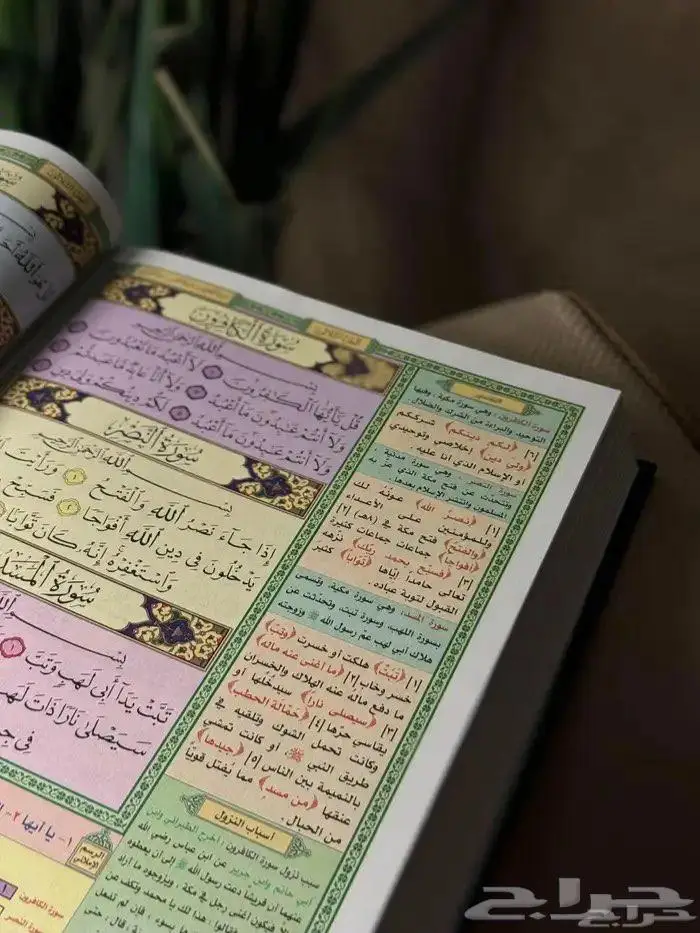 الجزء الثلاثون
سورة الكافرون
بسم الله الرحمن الرحيم
قل يأيها الكفرون لا أعبد ما تعبدون
ولا أنتم عبدون ما أعبد ولا أنا عابد ما عبدتم
ولا أنتم عبدون ما أعبد لكم دينكم ولي دين
سورة النصر
بسم الله الرحمن الرحيم
إذا جاء نصر الله والفتح ١ ورأيت
يدخلون في دين الله أفواجا ٢ فسبح
واستغفره إنه كان توابا
سورة المسد
بسم الله
تبت يدا أبي لهب وتب ١
سيصلى نارا ذات لهب
في
١- يا أيها ٢-
الرسم
الإملائي
سورة الكافرون
سورة النصر
التفسير
سورة الكافرون: وهي سورة مكية، وفيها
التوحيد والبراءة من الشرك والضلال.
[٦] ﴿لكم دينكم﴾ شرككم
﴿ولي دين﴾ إخلاصي وتوحيدي
أو الإسلام الذي أنا عليه
سورة النصر: وهي سورة مدنية،
وتتحدث عن فتح مكة الذي عز به
المسلمون وانتشر الإسلام بعدها.
[١] ﴿نصر الله﴾ عونه لك
وللمؤمنين على الأعداء
﴿والفتح﴾ فتح مكة في (٨هـ) [٢]
﴿أفواجا﴾ جماعات جماعات كثيرة
[٣] ﴿فسبح بحمد ربك﴾ نزهه
تعالى حامدا إياها ﴿توابا﴾ كثير
القبول لتوبة عباده.
سورة المسد: وهي سورة مكية، وتسمى
بسورة اللهب، وسورة تبت، وتحدثت عن
هلاك أبي لهب عم رسول الله ﷺ وزوجته
[١] ﴿تبت﴾ هلكت أو خسرت ﴿وتب﴾
خسر وخاب [٢] ﴿ما أغنى عنه ماله﴾
ما دفع ماله عنه الهلاك والخسران
[٣] ﴿سيصلى نارا﴾ سيدخلها أو
يقاسي حرها [٤] ﴿حمالة الحطب﴾
وكانت تحمل الشوك وتلقيه في
طريق النبي ﷺ، أو كانت تمشي
بالنميمة بين الناس [٥] ﴿جيدها﴾
عنقها ﴿من مسد﴾ مما يفتل قويا
من الحبال.
أسباب النزول
سبب نزول سورة الكافرون: أخرج الطبراني وابن
أبي حاتم وابن جرير عن ابن عباس رضي الله
عنهما أن قريشا دعت رسول الله ﷺ إلى أن يعطوه
فيكون أغنى رجل في مكة، ويزوجوه ما أراد
هذا لك يا محمد وتكف عن
بسوء، فإن لم تفعل
قال: حتى
حراج
حراج